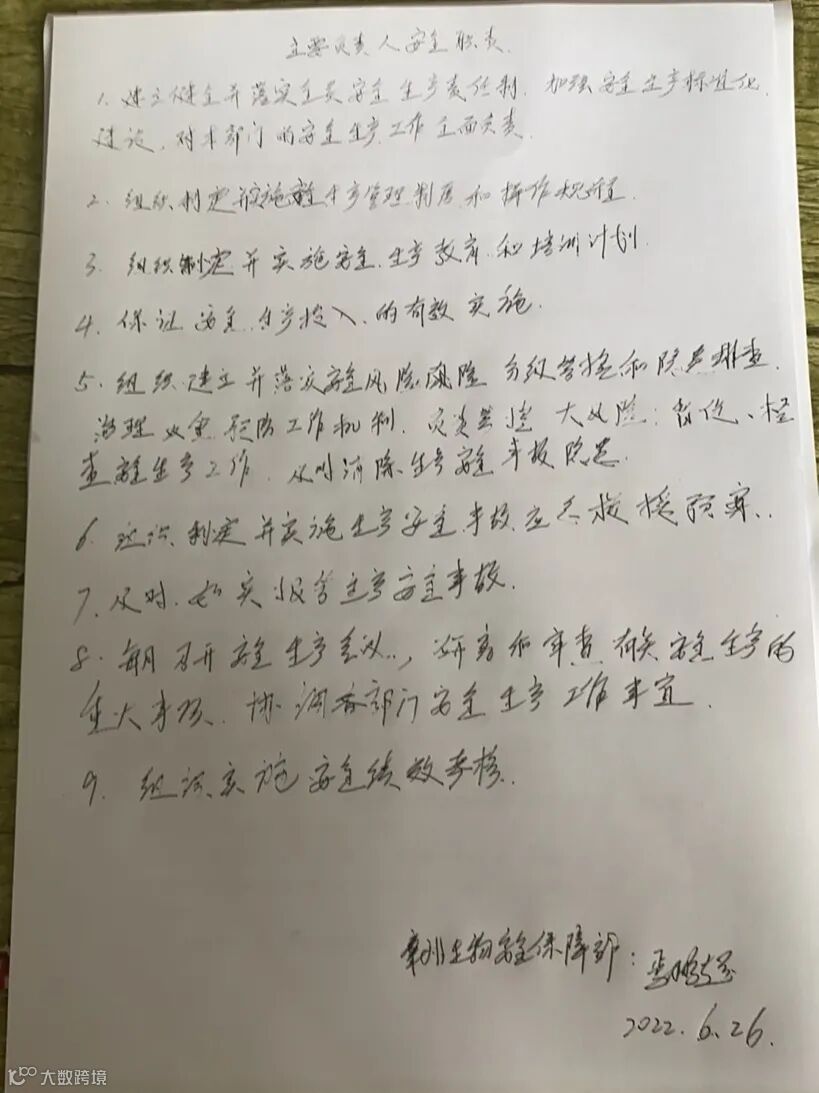 主要负责人安全职责
1. 建立健全并落实全员安全生产责任制, 加强安全生产标准化
建设, 对本部门的安全生产工作全面负责.
2. 组织制定并实施安全生产管理制度和操作规程.
3. 组织制定并实施安全生产教育和培训计划.
4. 保证安全生产投入的有效实施.
5. 组织建立并落实安全风险风险分级管控和隐患排查
治理双重预防工作机制, 大风险; 督促、检
查安全生产工作, 及时消除生产安全事故隐患.
6. 组织制定并实施生产安全事故应急救援预案.
7. 及时、如实报告生产安全事故.
8. 每月召开安全生产会议, 研究和审查有关安全生产的
重大事项, 协调各部门安全生产工作事宜.
9. 组织实施安全绩效考核.
生物安全保障部:
2022.6.26.
大数跨境